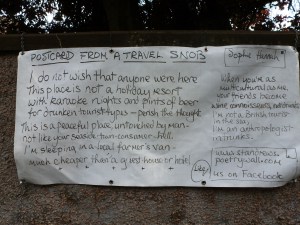 POSTCARD FROM A TRAVEL SNOB
I do not wish that anyone were here
This place is not a holiday resort
with karaoke nights and pints of beer
for drunken tourist types – perish the thought.
This is a peaceful place, untouched by man –
not like your seaside-town-consumer-hell.
I'm sleeping in a local farmer's van –
much cheaper than a guest-house or hotel
Sophie Hannah
When you're as
multicultural as me,
your friends become
wine connoisseurs, not
I'm not a British tourist
in the sea;
I'm an anthropologist
in trunks.
poetrywall.com
us on Facebook